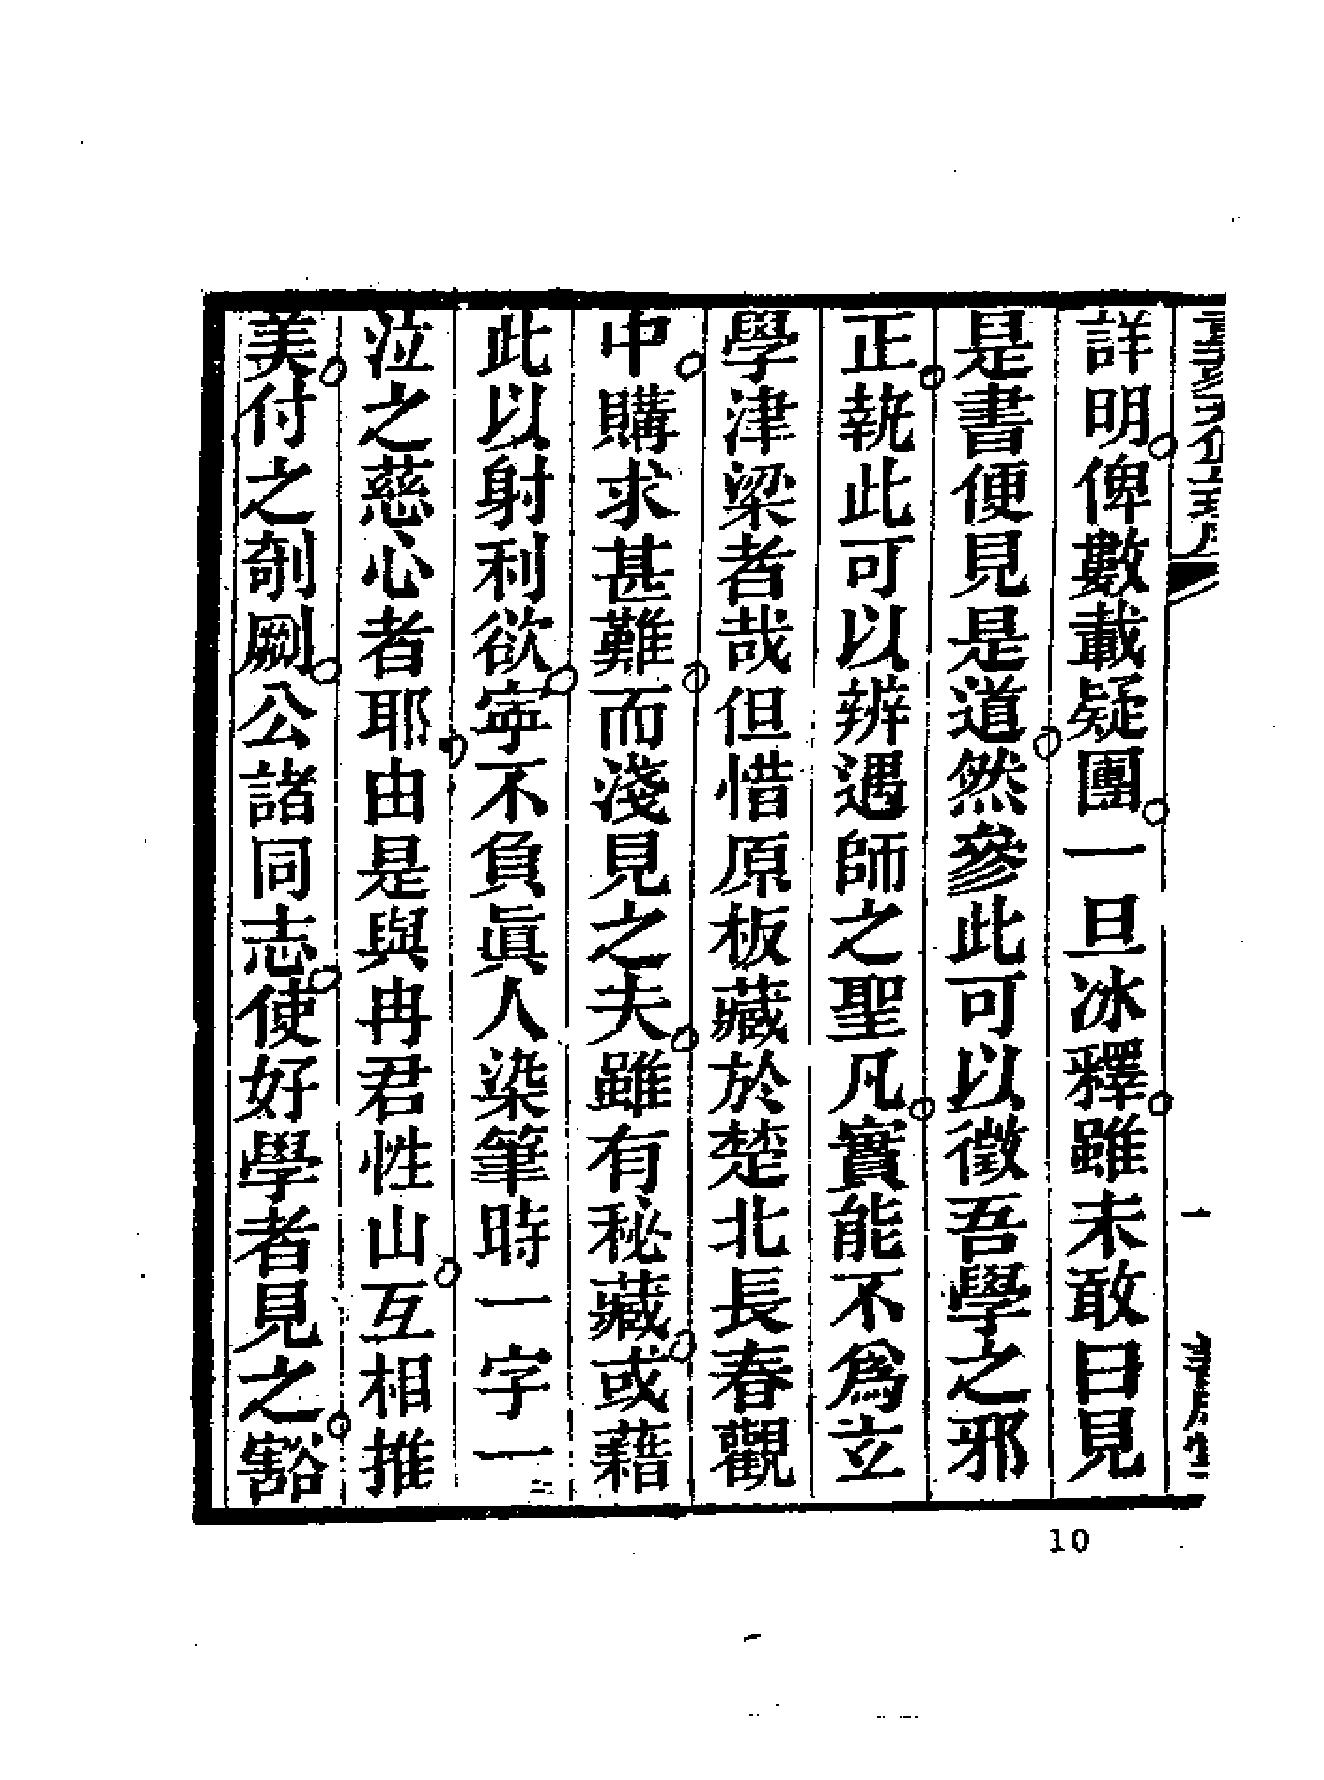 詳明俾數載疑團一旦冰釋雖未敢曰見
是書便見是道然參此可以徵吾學之邪
正執此可以辨遇師之聖凡實能不爲立
學津梁者哉但惜原板藏於楚北長春觀
中購求甚難而淺見之夫雖有秘藏或藉
此以射利欲寧不負眞人染筆時一字一
泣之慈心者耶由是與冉君性山互相推
美付之剞劂公諸同志使好學者見之豁
10